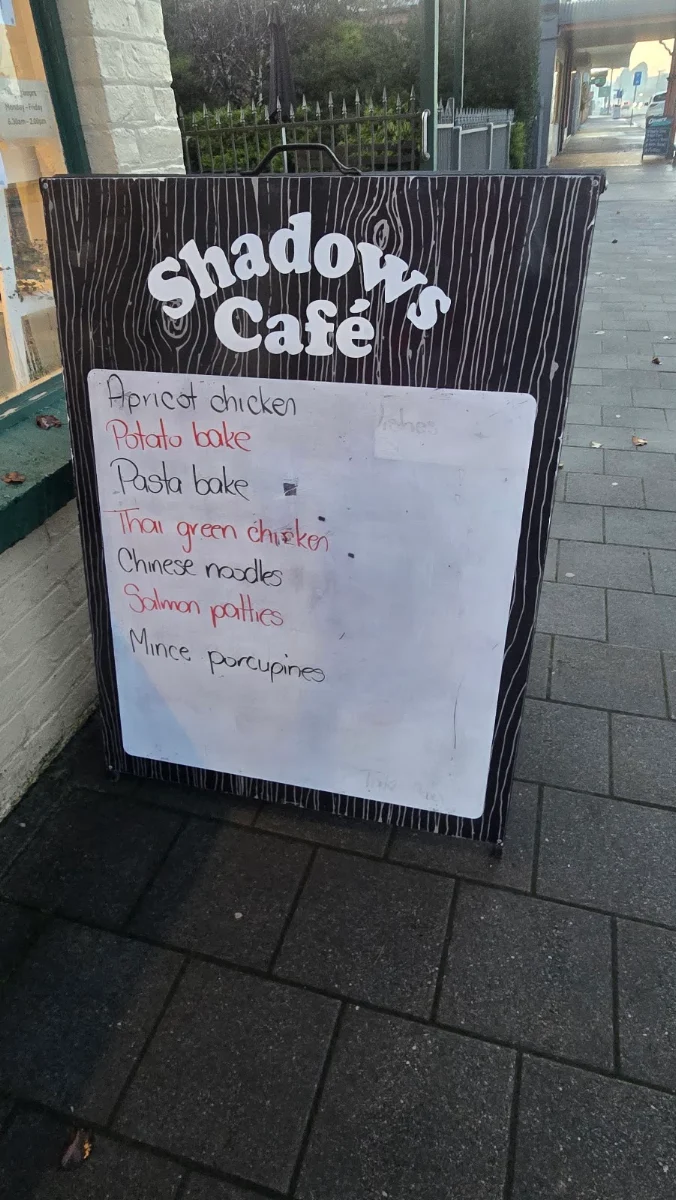 Monday - Friday
6.30am - 2.00pm
Shadows
Café
Apricot chicken
Potato bake
Pasta bake
Thai green chicken
Chinese noodles
Salmon patties
Mince porcupines